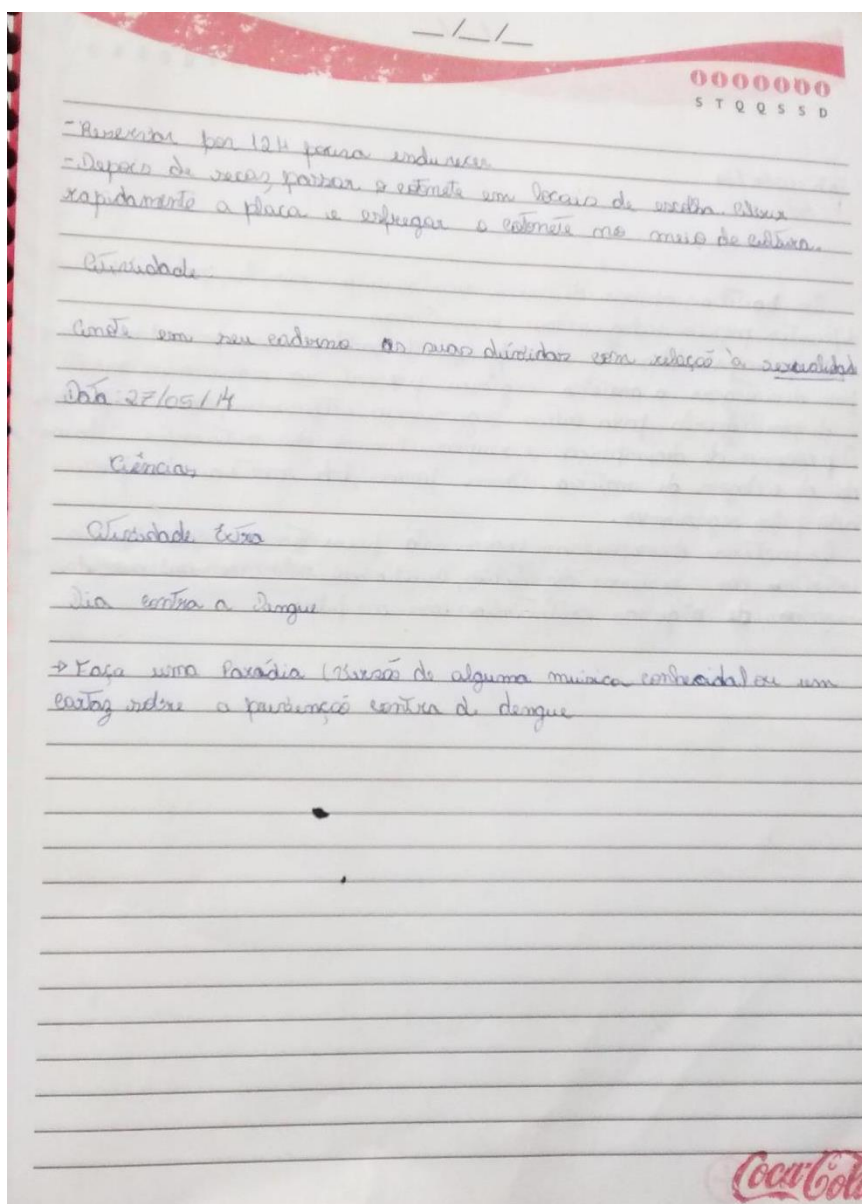 __/__/__
0000000
S T Q Q S S D
- Reservar por 12H para endurecer
- Depois de secar, passar o cotonete em locais de escolha. Abrir
rapidamente a placa e esfregar o cotonete no meio de cultura.
Atividade:
Anote em seu caderno as suas dúvidas com relação à sexualidade
Data: 27/05/14
Ciências
Atividade Extra
Dia contra a Dengue
→ Faça uma Paródia (Versão de alguma música conhecida) ou um
cartaz sobre a prevenção contra a dengue
Coca-Cola